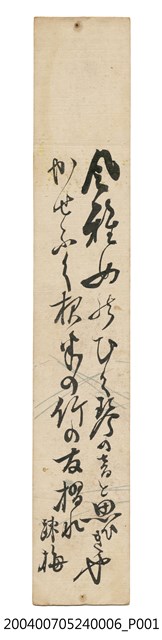 風雅め能ひく琴の音と思ひきや
かせふく根米の竹の友摺れ
疎梅
200400705240006_P001